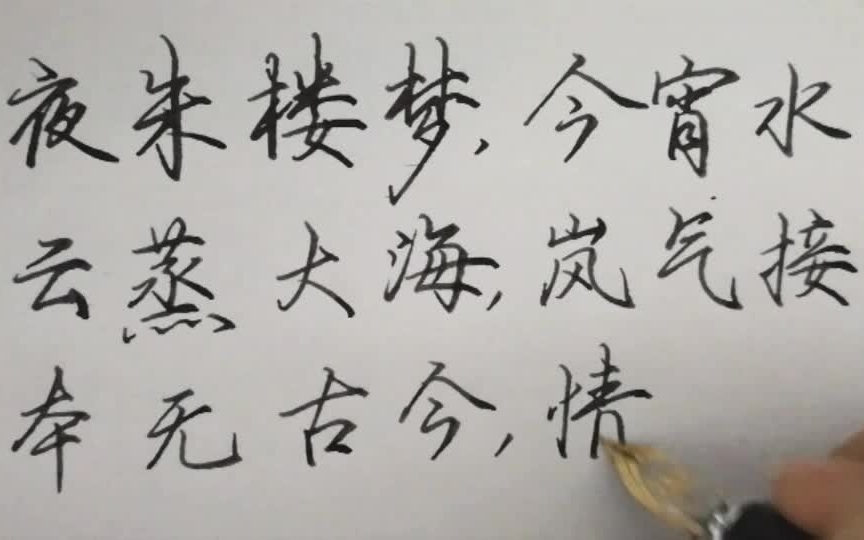 夜朱楼梦,今宵水
云蒸大海,岚气接
本无古今,情